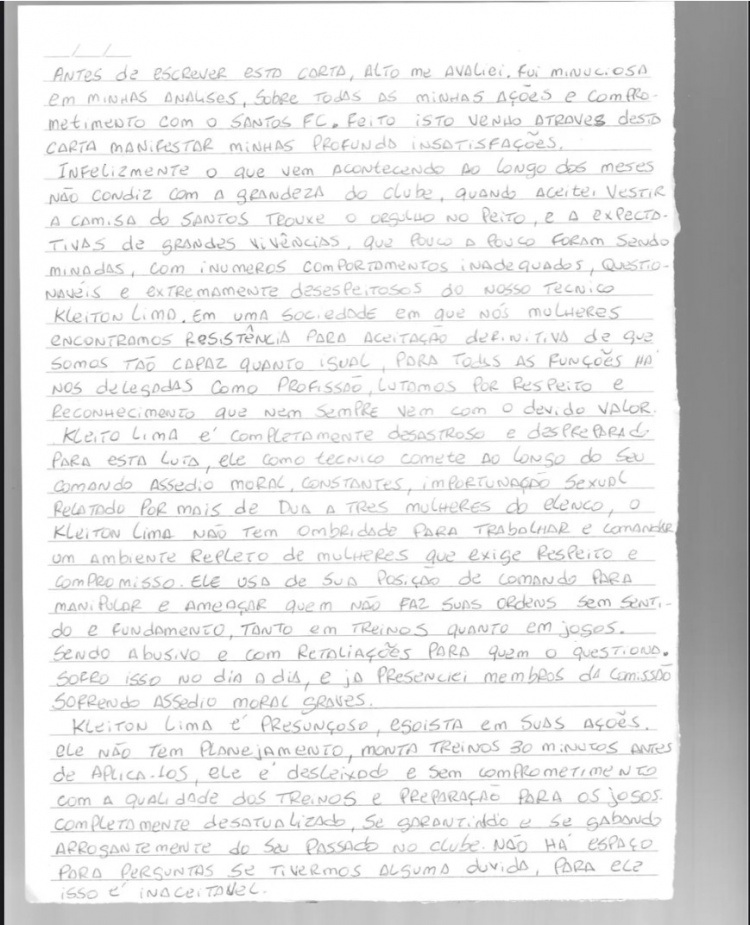 __/__/__
ANTES de escrever esta carta, ALTO me AVALiei. fui minuciosa
em minhas analises, sobre todas as minhas ações e compro-
metimento com o SANTOS FC. Feito isto venho atraves desta
carta manifestar minhas profunda insatisfações.
Infelizmente o que vem acontecendo ao longo dos meses
não condiz com a grandeza do clube, quando aceitei vestir
a camisa do SANTOS trouxe o orgulho no peito, e a expecta-
tivas de grandes vivências, que pouco a pouco foram sendo
minadas, com inumeros comportamentos inadequados, questio-
navéis e extremamente desespeitosos do nosso tecnico
Kleiton Lima. Em uma sociedade em que nós mulheres
encontramos resistência para aceitação definitiva de que
somos tão capaz quanto igual, para todas as funções há
nos delegadas como profissão, lutamos por respeito e
reconhecimento que nem sempre vem com o devido valor.
Kleito Lima é completamente desastroso e despreparado
para esta luta, ele como tecnico comete ao longo do seu
comando assedio moral, constantes, importunação sexual
relatado por mais de dua a tres mulheres do elenco, o
Kleiton Lima não tem ombridade para trabalhar e comandar
um ambiente repleto de mulheres que exige respeito e
compromisso. Ele usa de sua posição de comando para
manipular e ameaçar quem não faz suas ordens sem senti-
do e fundamento, tanto em treinos quanto em jogos.
Sendo abusivo e com retaliações para quem o questiona.
Sofro isso no dia a dia, e ja presenciei membros da comissão
sofrendo assedio moral graves.
Kleiton Lima é presunçoso, egoista em suas ações.
ele não tem planejamento, monta treinos 30 minutos antes
de aplica-los, ele é desleixado e sem comprometimento
com a qualidade dos treinos e preparação para os jogos.
Completamente desatualizado, se garantindo e se gabando
arrogantemente do seu passado no clube. Não há espaço
para perguntas se tivermos alguma duvida, para ele
isso é inaceitavel.